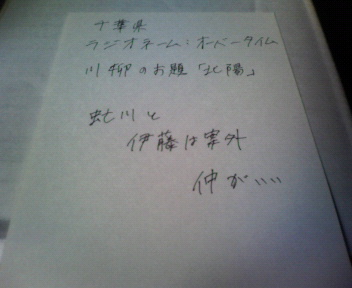 千葉県
ラジオネーム:オードータイム
川柳のお題「北陽」
虻川と
伊藤は案外
仲がいい